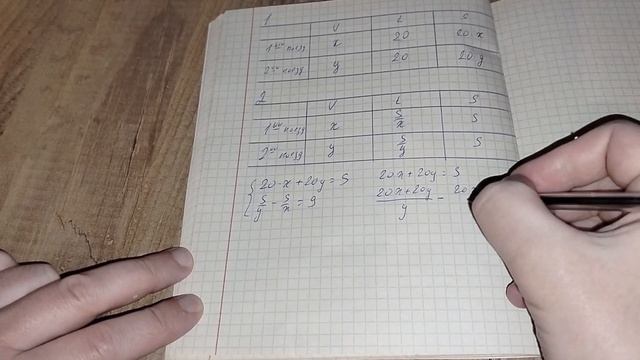 1
V t S
1ый поезд x 20 20·x
2ой поезд y 20 20y
2
V t S
1ый поезд x S/x S
2ой поезд y S/y S
20·x+20y=S 20x+20y=S
S/y - S/x = 9 (20x+20y)/y - 20